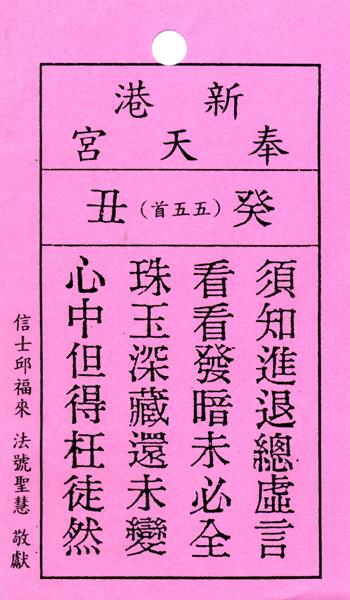 新港
奉天宮
癸（五五首）丑
須知進退總虛言
看看發暗未必全
珠玉深藏還未變
心中但得枉徒然
信士邱福來 法號聖慧 敬獻